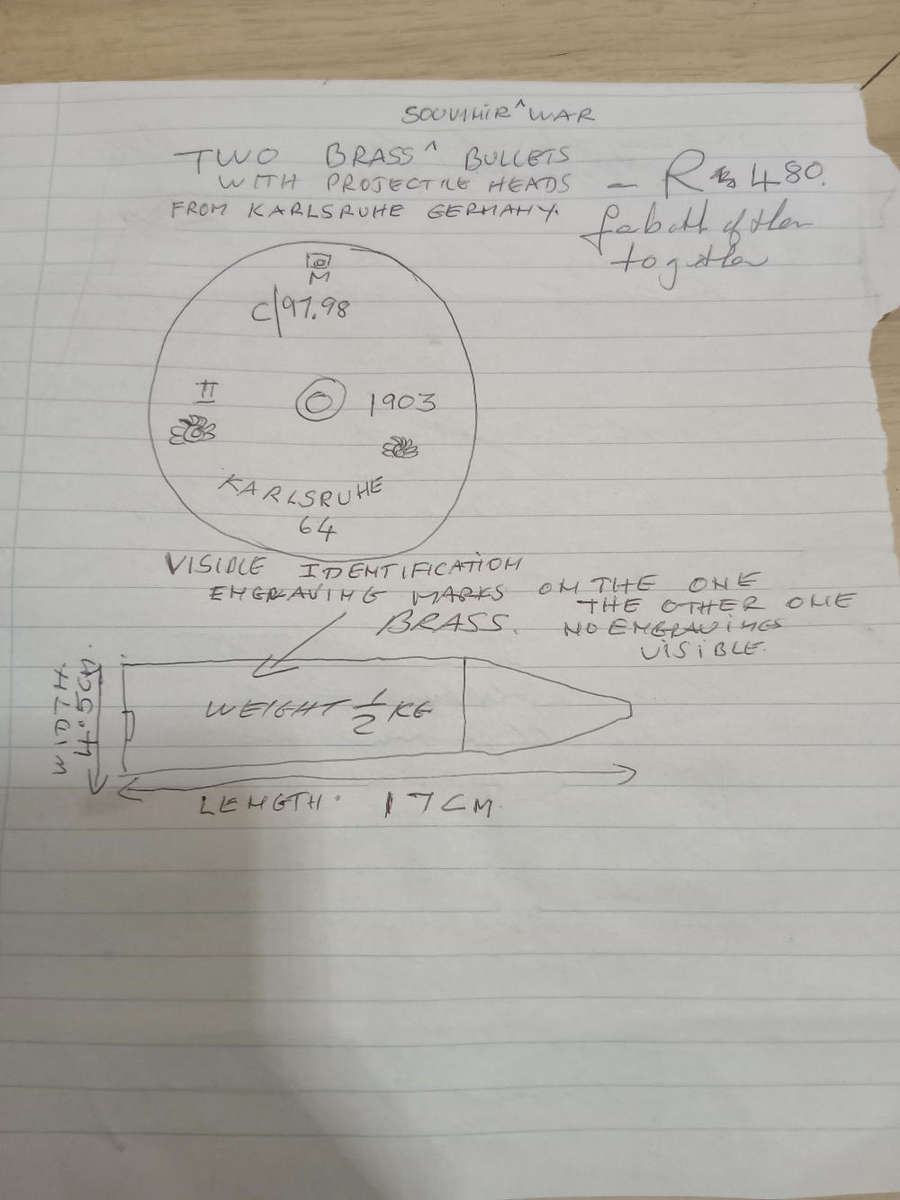 SOUVINIR ^ WAR
TWO BRASS ^ BULLETS
WITH PROJECTILE HEADS — R 480.
FROM KARLSRUHE GERMANY.
for both of them
together
M
C/97.98
II
1903
KARLSRUHE
64
VISIBLE IDENTIFICATION
ENGRAVING MARKS ON THE ONE
BRASS. THE OTHER ONE
NO ENGRAVINGS
VISIBLE.
WIDTH.
4.5CM.
WEIGHT 1/2 KG
LENGTH. 17CM.